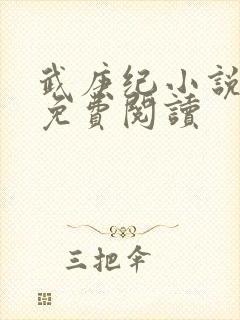 武庚纪小説
免費閱讀
三把伞